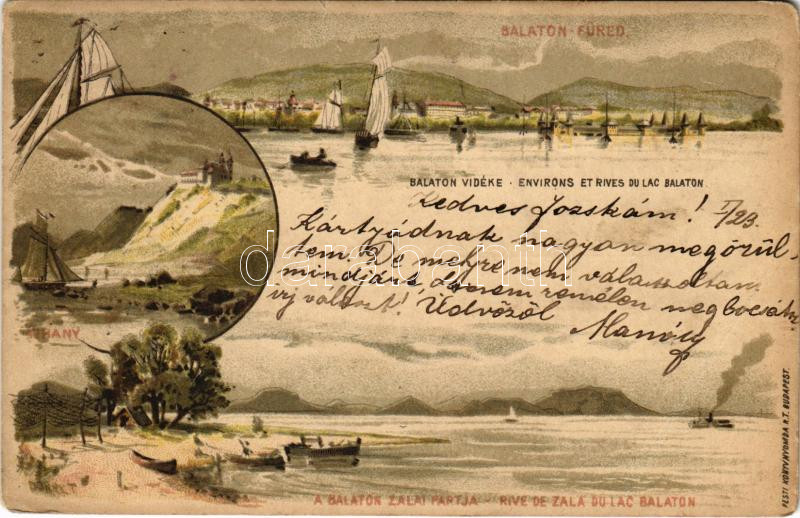 BALATON-FÜRED.
BALATON VIDÉKE · ENVIRONS ET RIVES DU LAC BALATON
Kedves Jozskám! 1/23.
Kártyádnak nagyon megörül-
tem. De mért nem válaszoltam
mindjárt, remélem megbocsátasz
választ! Üdvözöl
TIHANY
darabanth
A BALATON ZALAI PARTJA - RIVE DE ZALA DU LAC BALATON
PESTI KÖNYVNYOMDA R.T. BUDAPEST.